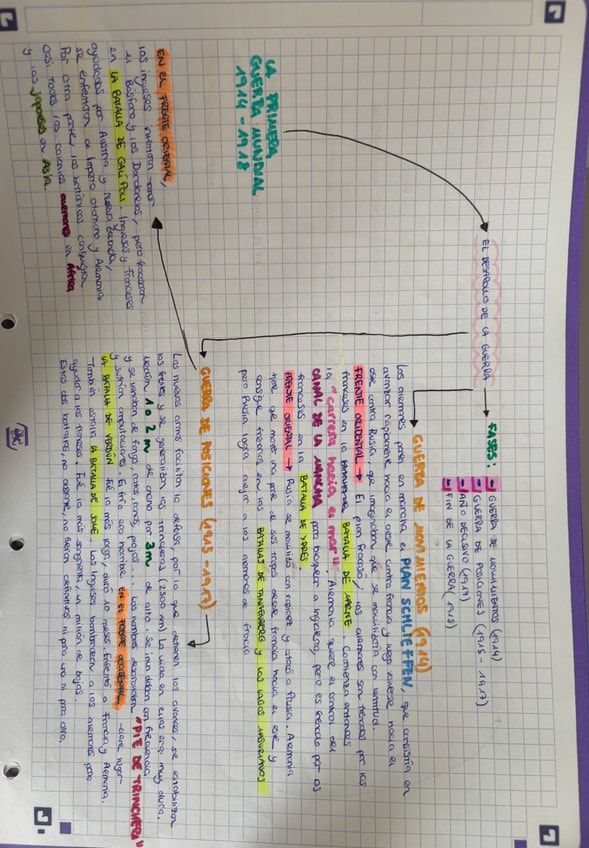 LA PRIMERA
GUERRA MUNDIAL
1914-1918
EL DESARROLLO DE LA GUERRA
FASES:
GUERRA DE MOVIMIENTOS (1914)
GUERRA DE POSICIONES (1915-1917)
AÑO DECISIVO (1917)
FIN DE LA GUERRA (1918)
GUERRA DE MOVIMIENTOS (1914)
Los alemanes ponen en marcha el PLAN SCHLIEFFEN, que consistía en
avanzar rápidamente hacia el oeste contra Francia y luego volverse hacia el
este contra Rusia, que imaginaban que se movilizaría con lentitud.
FRENTE OCCIDENTAL → El plan fracasó, los alemanes son frenados por los
franceses en la BATALLA DE MARNE. Comienza entonces
la "carrera hacia el mar". Alemania quiere el control del
CANAL DE LA MANCHA para bloquear a Inglaterra, pero es frenado por los
franceses en la BATALLA DE YPRES
FRENTE ORIENTAL → Rusia se movilizó con rapidez y atacó a Prusia. Alemania
tiene que mover una parte de sus tropas desde Francia hacia el este y
consigue frenarlos en las BATALLAS DE TANNENBERG y LOS LAGOS MASURIANOS
pero Rusia logra alejar a los alemanes de Francia
GUERRA DE POSICIONES (1915-1917)
Las nuevas armas facilitan la defensa, por lo que detienen los avances, se estabilizan
los frentes y se generalizan las trincheras (2500 km) La vida en ellas era muy dura.
Medían 1 o 2 m de ancho por 3m de alto. Se inundaban con frecuencia
y se llenaban de fango, ratas, piojos... Los hombres desarrollaron "PIE DE TRINCHERA"
y sufrían amputaciones. El frío, el hambre. EN EL FRENTE OCCIDENTAL, tiene lugar
LA BATALLA DE VERDÚN. Fue la más larga, duró 10 meses. Enfrentó a Francia y Alemania.
También estalla LA BATALLA DE SOMME. Los ingleses bombardean a los alemanes para
ayudar a los franceses. Fue la más sangrienta, un millón de bajas.
Estas dos batallas, no obstante, no fueron definitivas ni para uno ni para otro.
EN EL FRENTE ORIENTAL,
los ingleses intentan tomar
el Bósforo y los Dardanelos, pero fracasaron
en LA BATALLA DE GALÍPOLI. Ingleses y franceses
ayudados por Austria y Nueva Zelanda,
se enfrentan al Imperio otomano y Alemania.
Por otra parte, los británicos conquistan
casi todas las colonias alemanas en África
y los japoneses en Asia.